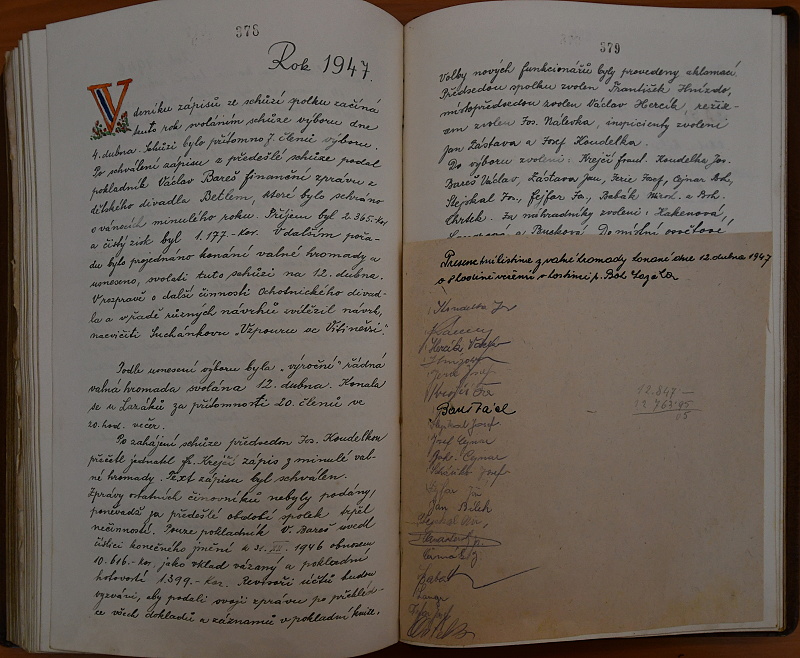 378
Rok 1947.
V
deníku zápisů ze schůzí spolku začíná
tento rok svoláním schůze výboru dne
4. dubna. Schůzi bylo přítomno 7 členů výboru.
Po schválení zápisu z předešlé schůze podal
pokladník Václav Bareš finanční zprávu z
dětského divadla Betlem, které bylo sehráno
o vánocích minulého roku. Příjem byl 2.365 Kčs
a čistý zisk byl 1.177.- Kčs. V dalším pořa-
du bylo projednáno konání valné hromady a
usneseno, svolati tuto schůzi na 12. dubna.
V rozpravě o další činnosti Ochotnického divad-
la a v řadě různých návrhů zvítězil návrh,
nacvičiti Suchánkovu „Vzpouru ve Vštiněvsi".
Podle usnesení výboru byla „výroční" řádná
valná hromada svolána 12. dubna. Konala
se u Lazáků za přítomnosti 20. členů ve
20. hod. večer.
Po zahájení schůze předsedou Jos. Koudelkou
přečetl jednatel fr. Krejčí zápis z minulé val-
né hromady. Text zápisu byl schválen.
Zprávy ostatních činovníků nebyly podány,
poněvadž za předešlé období spolek trpěl
nečinností. Pouze pokladník V. Bareš uvedl
číslici konečného jmění k 31. XII. 1946 obnosem
10.616.- Kčs. jako vklad vázaný a pokladní
hotovostí 1.399.- Kčs. Revisoři účtů budou
vyzváni, aby podali svoji zprávu po přehléd-
ce všech dokladů a záznamů v pokladní knize.
579
Volby nových funkcionářů byly provedeny aklamací.
Předsedou spolku zvolen František Hnízdo,
místopředsedou zvolen Václav Hercík, režis-
em zvolen Jos. Nálevka, inspicienty zvoleni
Jan Zástava a Josef Koudelka.
Do výboru zvoleni: Krejčí frant. Koudelka Jos.
Bareš Václav, Zástava Jan, Ferie Josef, Cejnar Boh,
Stejskal Jos., Fejfar Ja., Babák Mirosl. a Boh.
Chrtek. Za náhradníky zvoleni: Hakenová,
a Bucková. Do místní osvětové
Presenční listina z valné hromady konané dne 12. dubna 1947
o 8 hodině večerní v hostinci p. Boh Lazáka
Koudelka Jos
Hercík Václav
Josef
Krejčí Fr.
Bareš Václ
Stejskal Josef
Josef Cejnar
Boh. Cejnar
Josef
Fejfar Ja
Jan Bílek
12.847 —
12.763.95
05